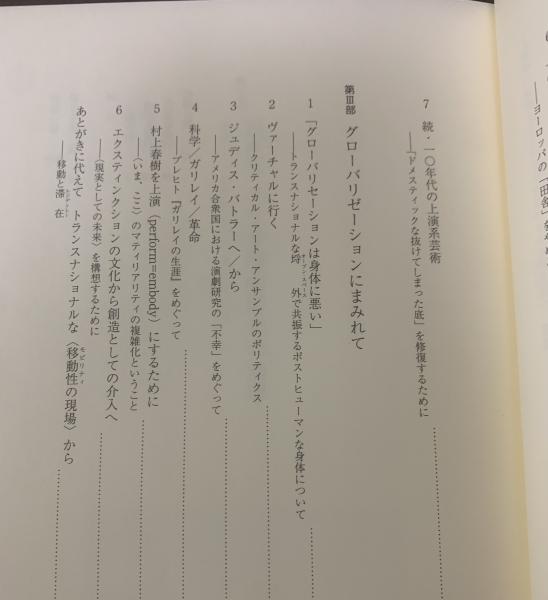 ――ヨーロッパの「田舎」を
7 続・一〇年代の上演系芸術
――『ドメスティックな抜けてしまった底』を修復するために
第Ⅲ部 グローバリゼーションにまみれて
1 「グローバリゼーションは身体に悪い」
――トランスナショナルな埒外で共振するポストヒューマンな身体について
オープン・スペース
2 ヴァーチャルに行く
――クリティカル・アート・アンサンブルのポリティクス
3 ジュディス・バトラーへ／から
――アメリカ合衆国における演劇研究の「不幸」をめぐって
4 科学／ガリレイ／革命
――ブレヒト『ガリレイの生涯』をめぐって
5 村上春樹を上演（perform=embody）にするために
――〈いま、ここ〉のマティリアリティの複雑化ということ
6 エクスティンクションの文化から創造としての介入へ
――〈現実としての未来〉を構想するために
あとがきに代えて トランスナショナルな〈移動性の現場〉から
モビリティ
――移動と滞在